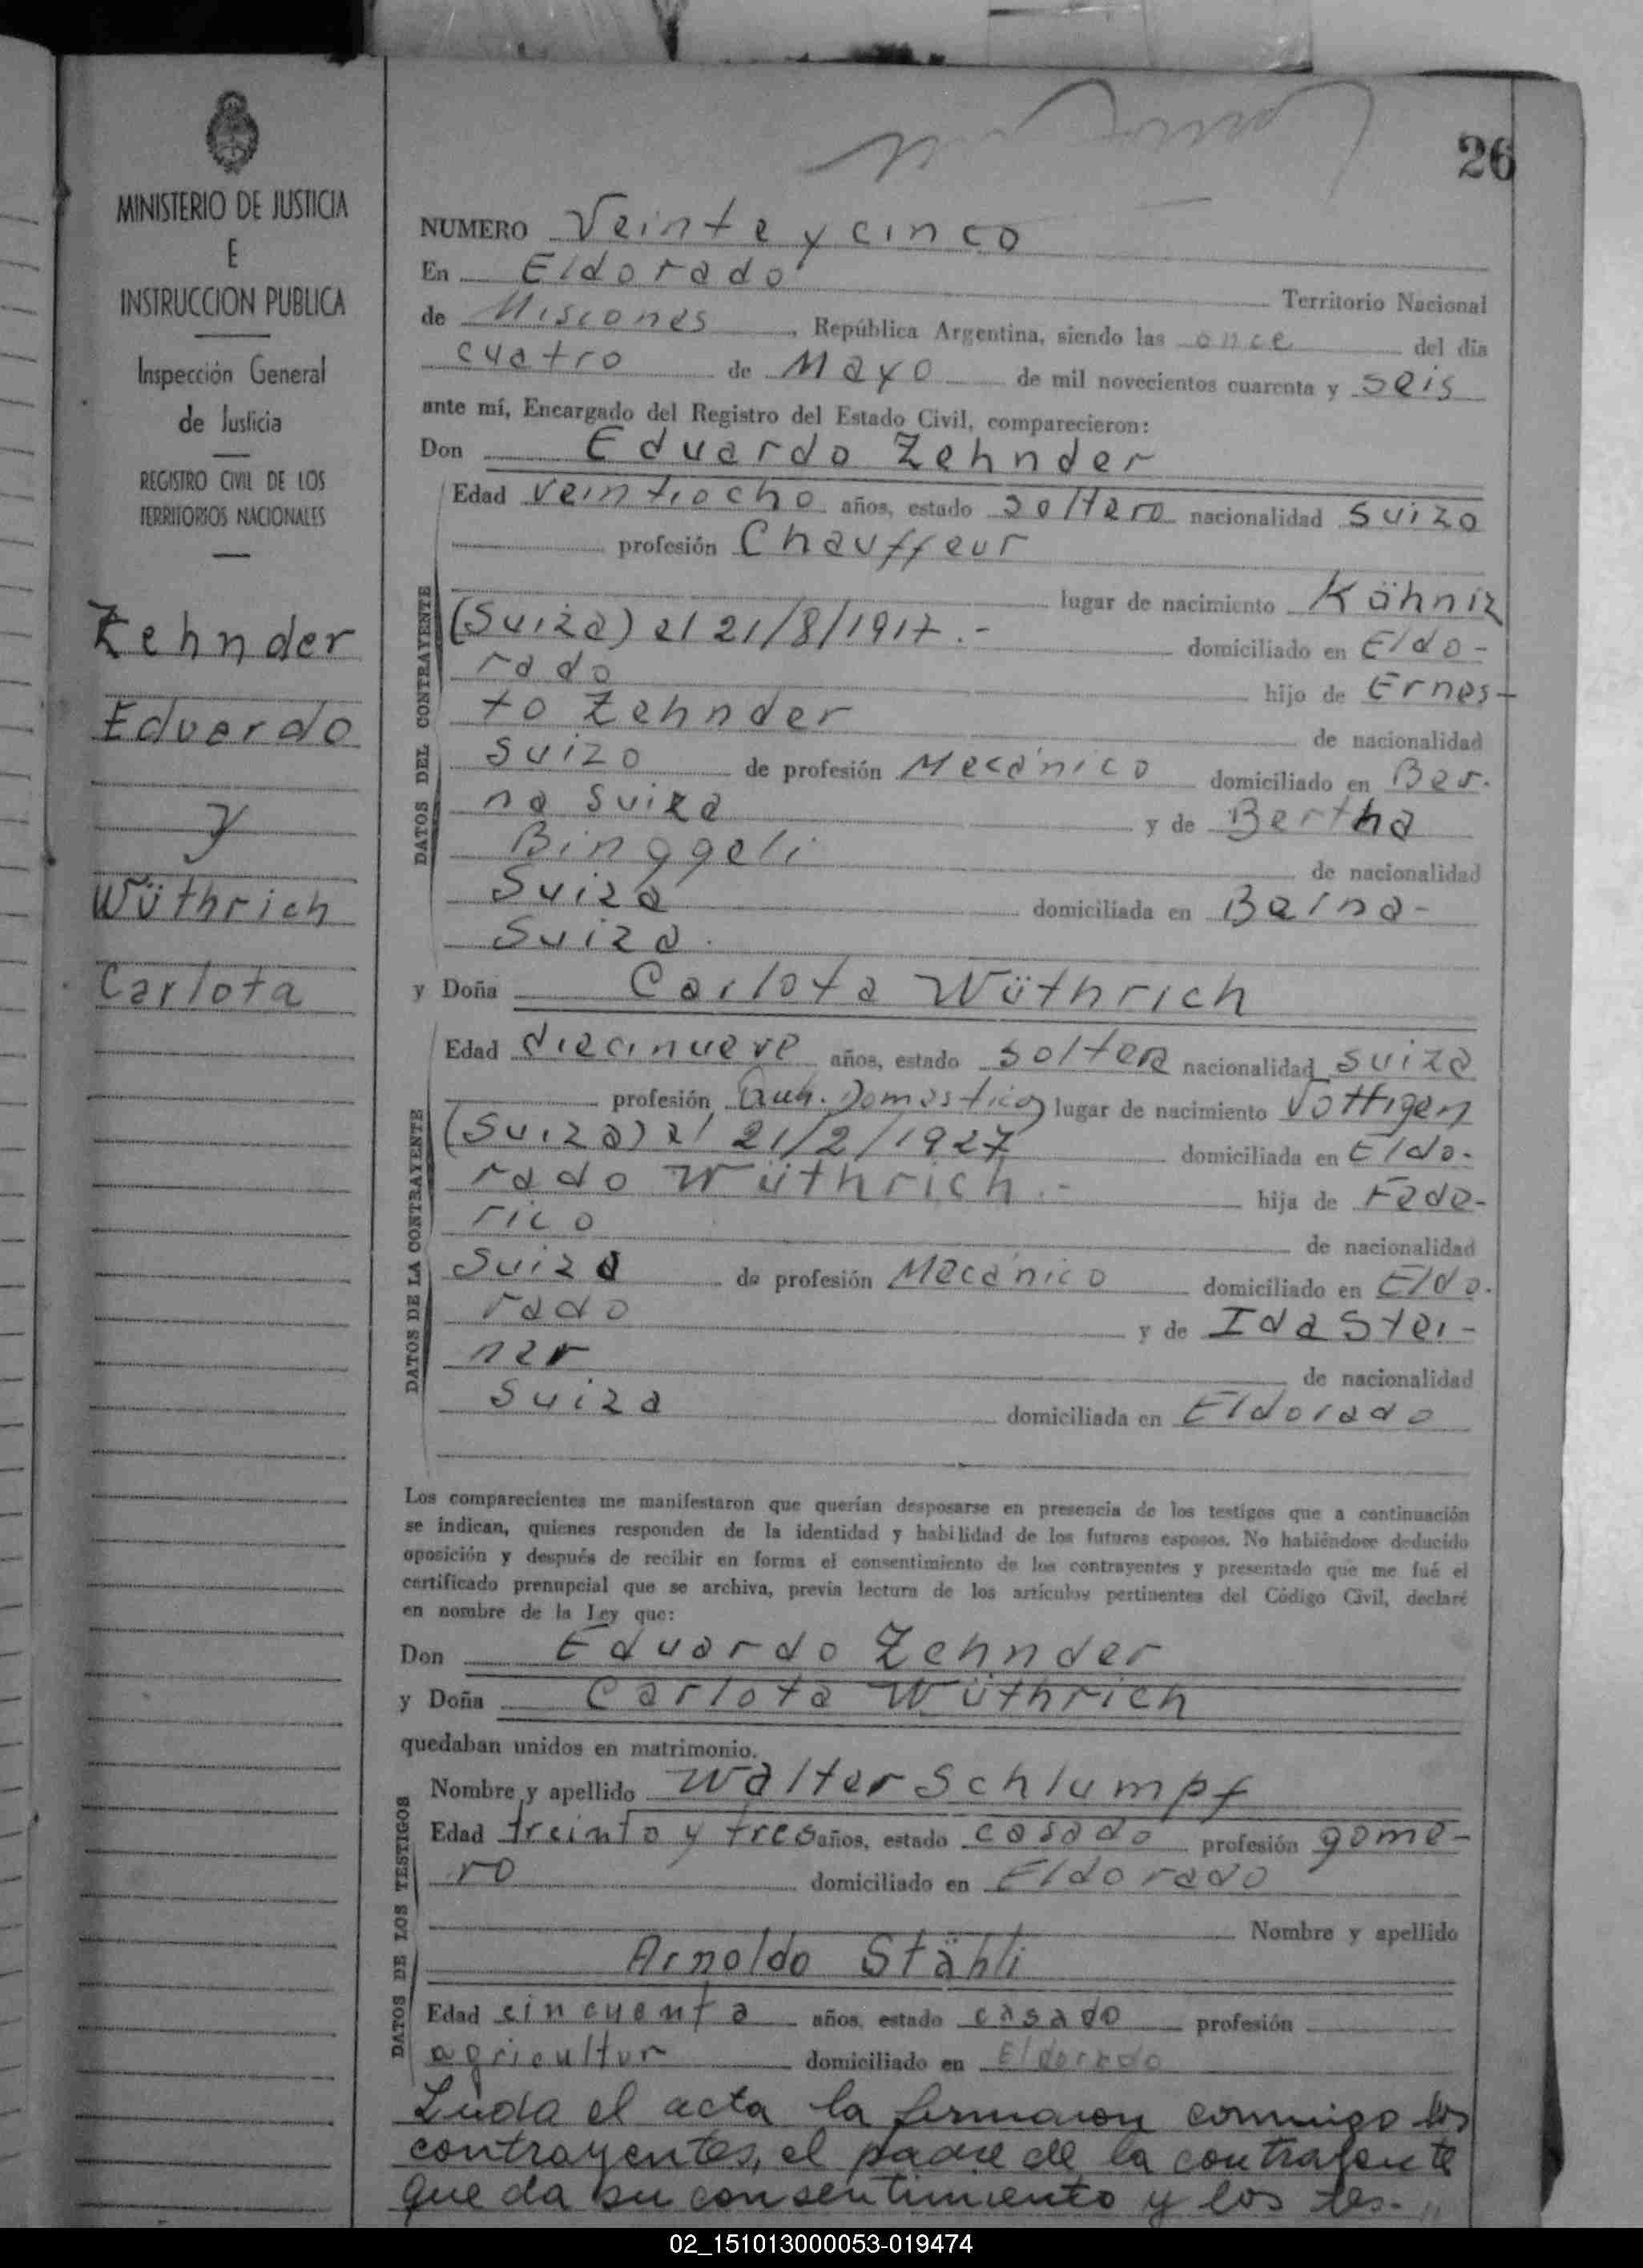 26
MINISTERIO DE JUSTICIA
E
INSTRUCCION PUBLICA
Inspección General
de Justicia
REGISTRO CIVIL DE LOS
TERRITORIOS NACIONALES
Zehnder
Eduardo
y
Wüthrich
Carlota
NUMERO Veinte y cinco
En Eldorado Territorio Nacional
de Misiones, República Argentina, siendo las once del día
cuatro de Mayo de mil novecientos cuarenta y seis
ante mí, Encargado del Registro del Estado Civil, comparecieron:
Don Eduardo Zehnder
DATOS DEL CONTRAYENTE
Edad veintiocho años, estado soltero nacionalidad suizo
profesión Chauffeur
lugar de nacimiento Kähniz
(Suiza) el 21/8/1917.- domiciliado en Eldo-
rado hijo de Ernes-
to Zehnder de nacionalidad
suizo de profesión Mecánico domiciliado en Ber-
na Suiza y de Bertha
Binggeli de nacionalidad
Suiza domiciliada en Berna-
Suiza.
y Doña Carlota Wüthrich
DATOS DE LA CONTRAYENTE
Edad diecinueve años, estado soltera nacionalidad suiza
profesión Domésticos lugar de nacimiento Vottigen
(Suiza) el 21/2/1927 domiciliada en Eldo-
rado Wüthrich.- hija de Fede-
rico de nacionalidad
Suiza de profesión Mecánico domiciliado en Eldo-
rado y de Ida Stei-
ner de nacionalidad
Suiza domiciliada en Eldorado
Los comparecientes me manifestaron que querían desposarse en presencia de los testigos que a continuación
se indican, quienes responden de la identidad y habilidad de los futuros esposos. No habiéndose deducido
oposición y después de recibir en forma el consentimiento de los contrayentes y presentado que me fué el
certificado prenupcial que se archiva, previa lectura de los artículos pertinentes del Código Civil, declaré
en nombre de la Ley que:
Don Eduardo Zehnder
y Doña Carlota Wüthrich
quedaban unidos en matrimonio.
DATOS DE LOS TESTIGOS
Nombre y apellido Walter Schlumpf
Edad treinta y tres años, estado casado profesión gome-
ro domiciliado en Eldorado
Nombre y apellido
Arnoldo Stähli
Edad cincuenta años, estado casado profesión
agricultur domiciliado en Eldorado
Leida el acta la firmaron conmigo los
contrayentes, el padre de la contrayente
que da su consentimiento y los tes-
02_151013000053-019474